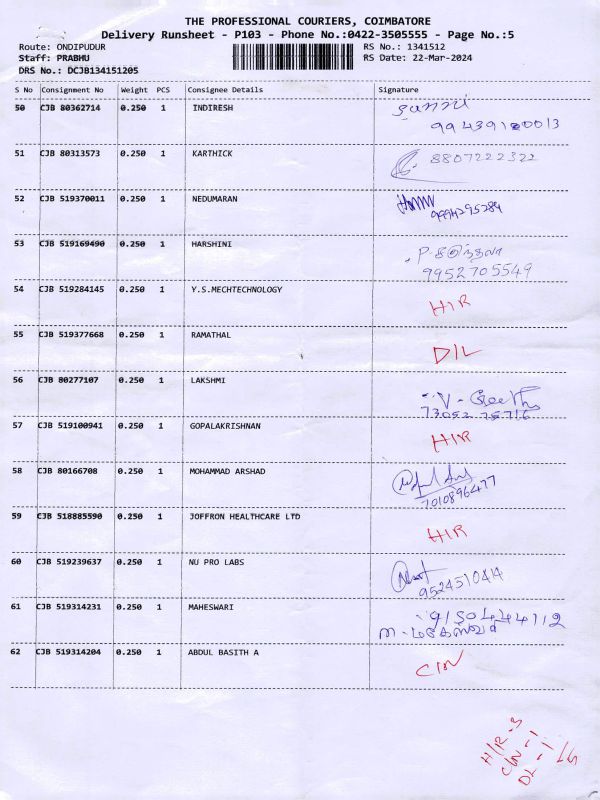 THE PROFESSIONAL COURIERS, COIMBATORE
Delivery Runsheet - P103 - Phone No.:0422-3505555 - Page No.:5
Route: ONDIPUDUR RS No.: 1341512
Staff: PRABHU RS Date: 22-Mar-2024
DRS No.: DCJB134151205
S No Consignment No Weight PCS Consignee Details Signature
50 CJB 80362714 0.250 1 INDIRESH
51 CJB 80313573 0.250 1 KARTHICK 8807222322
52 CJB 519370011 0.250 1 NEDUMARAN
9994295284
53 CJB 519169490 0.250 1 HARSHINI
9952705549
54 CJB 519284145 0.250 1 Y.S.MECHTECHNOLOGY HIR
55 CJB 519377668 0.250 1 RAMATHAL D/L
56 CJB 80277107 0.250 1 LAKSHMI V - Geetha
73052 75716
57 CJB 519100941 0.250 1 GOPALAKRISHNAN HIR
58 CJB 80166708 0.250 1 MOHAMMAD ARSHAD
7010896477
59 CJB 518885590 0.250 1 JOFFRON HEALTHCARE LTD HIR
60 CJB 519239637 0.250 1 NU PRO LABS
9524510414
61 CJB 519314231 0.250 1 MAHESWARI 9150444112
ம. மகேஸ்வரி
62 CJB 519314204 0.250 1 ABDUL BASITH A C/N
H/R - 3
C/N - 1
DL - 1